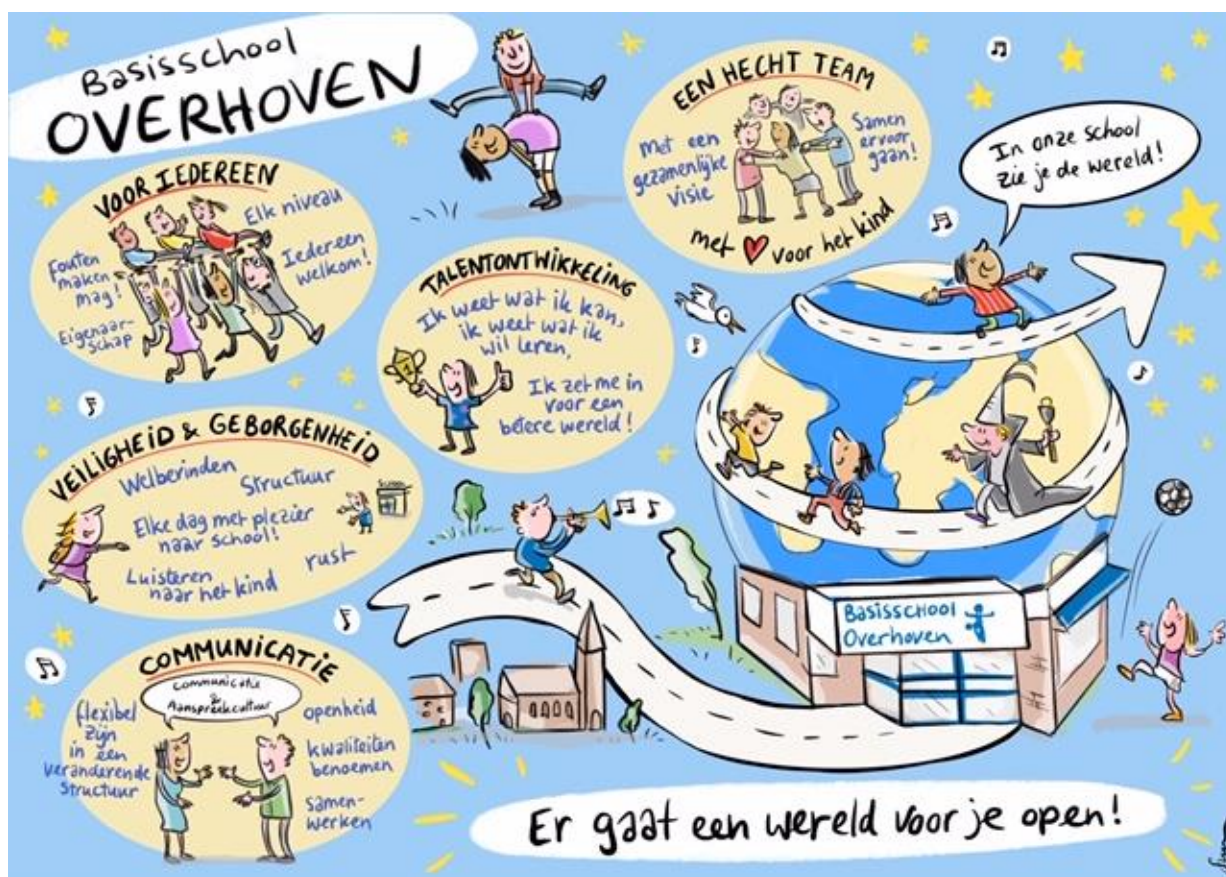 Basisschool
OVERHOVEN
VOOR IEDEREEN
Elk niveau
Fouten
maken
mag!
Iedereen
welkom!
Eigenaar-
schap
EEN HECHT TEAM
Met een
gezamenlijke
visie
Samen
ervoor
gaan!
met voor het kind
In onze school
zie je de wereld!
TALENTONTWIKKELING
Ik weet wat ik kan,
ik weet wat ik
wil leren,
Ik zet me in
voor een
betere wereld!
VEILIGHEID & GEBORGENHEID
Welberinden
Structuur
School
Elke dag met plezier
naar school!
Luisteren
naar het kind
rust
COMMUNICATIE
Communicatie
&
Aanspreekcultuur
flexibel
zijn
in een
veranderende
structuur
openheid
kwaliteiten
benoemen
samen-
werken
Basisschool
Overhoven
Er gaat een wereld voor je open!